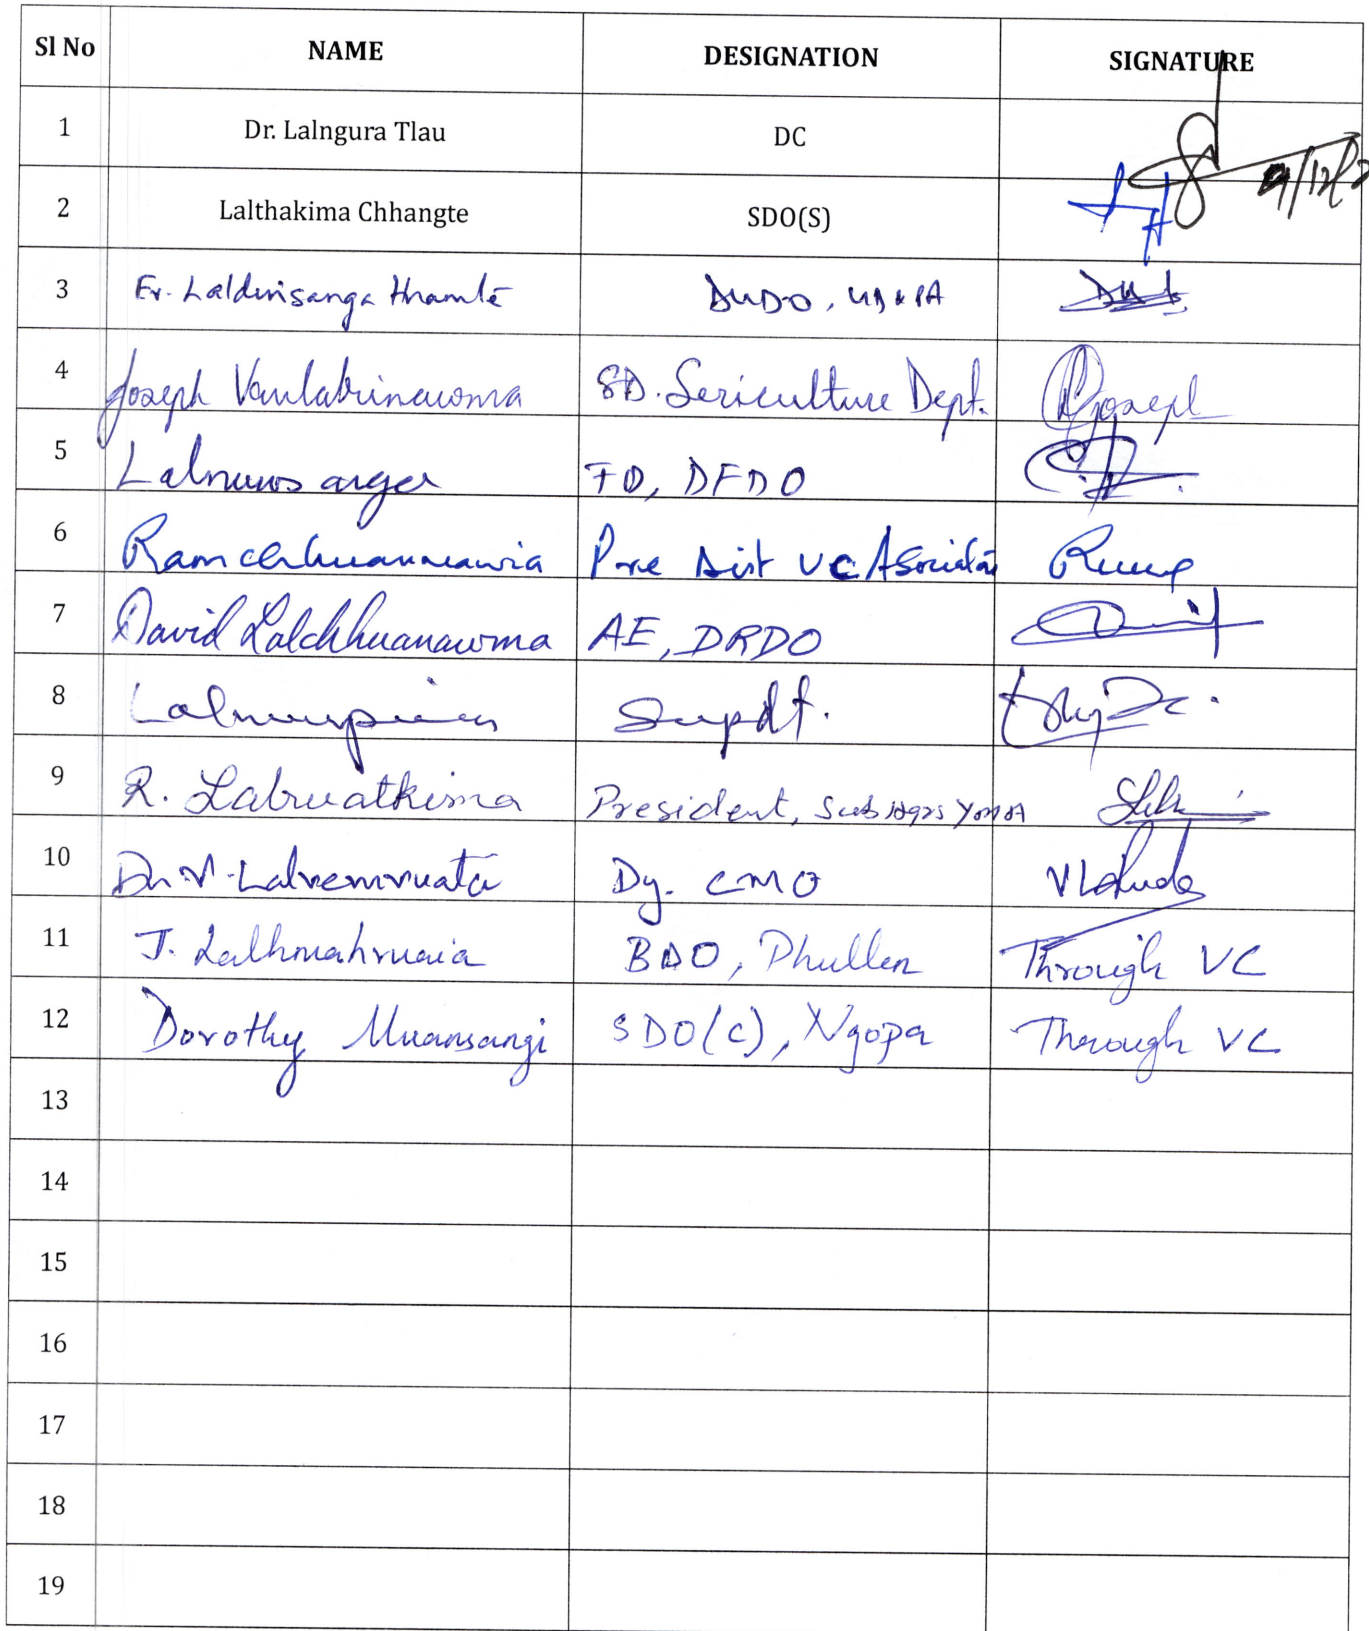 Sl No NAME DESIGNATION SIGNATURE
1 Dr. Lalngura Tlau DC
2 Lalthakima Chhangte SDO(S)
3 Er. Laldinsanga Hnamte DUDO, UD&PA
4 Joseph Vanlalrinawma SD. Sericulture Dept. Joseph
5 FO, DFDO
6 Dist VC
7 David Lalchhuanawma AE, DRDO
8 Supdt.
9 R. Lalruatkima President, Sub Hqrs YMA
10 Dr. V. Lalremruata Dy. CMO
11 J. Lalhmahruaia BDO, Phullen Through VC
12 Dorothy Muansangi SDO(C), Ngopa Through VC
13
14
15
16
17
18
19